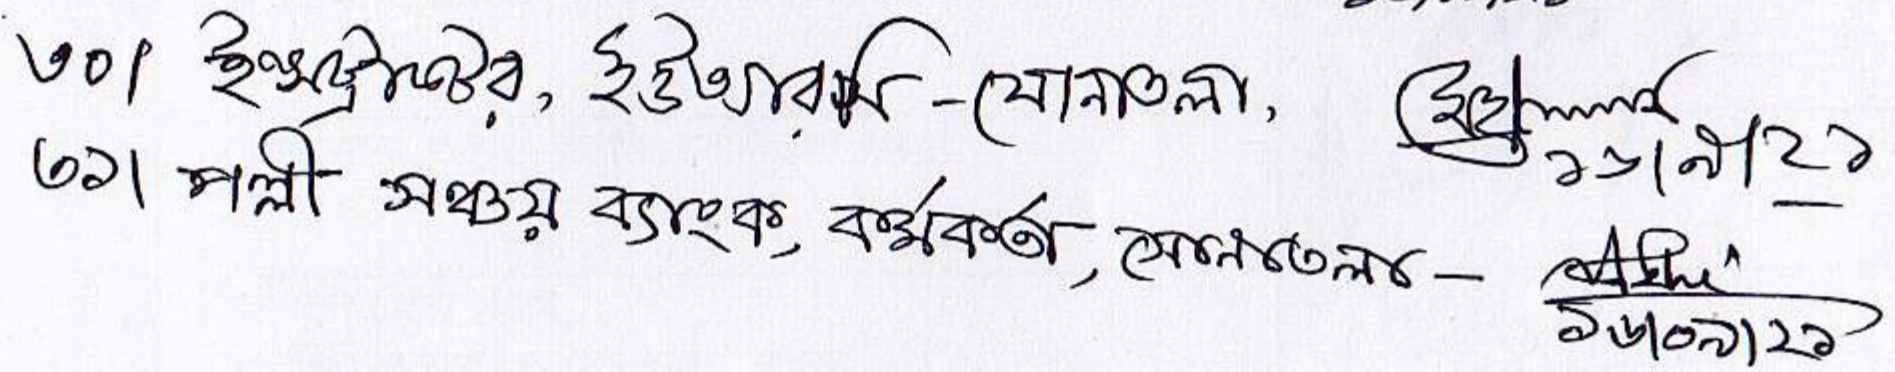 ৩০। ইন্সট্রাক্টর, ইউআরসি - সোনাতলা, ১৬/৯/২১
৩১। পল্লী সঞ্চয় ব্যাংক, কর্মকর্তা, সোনাতলা – ১৬/০৯/২১